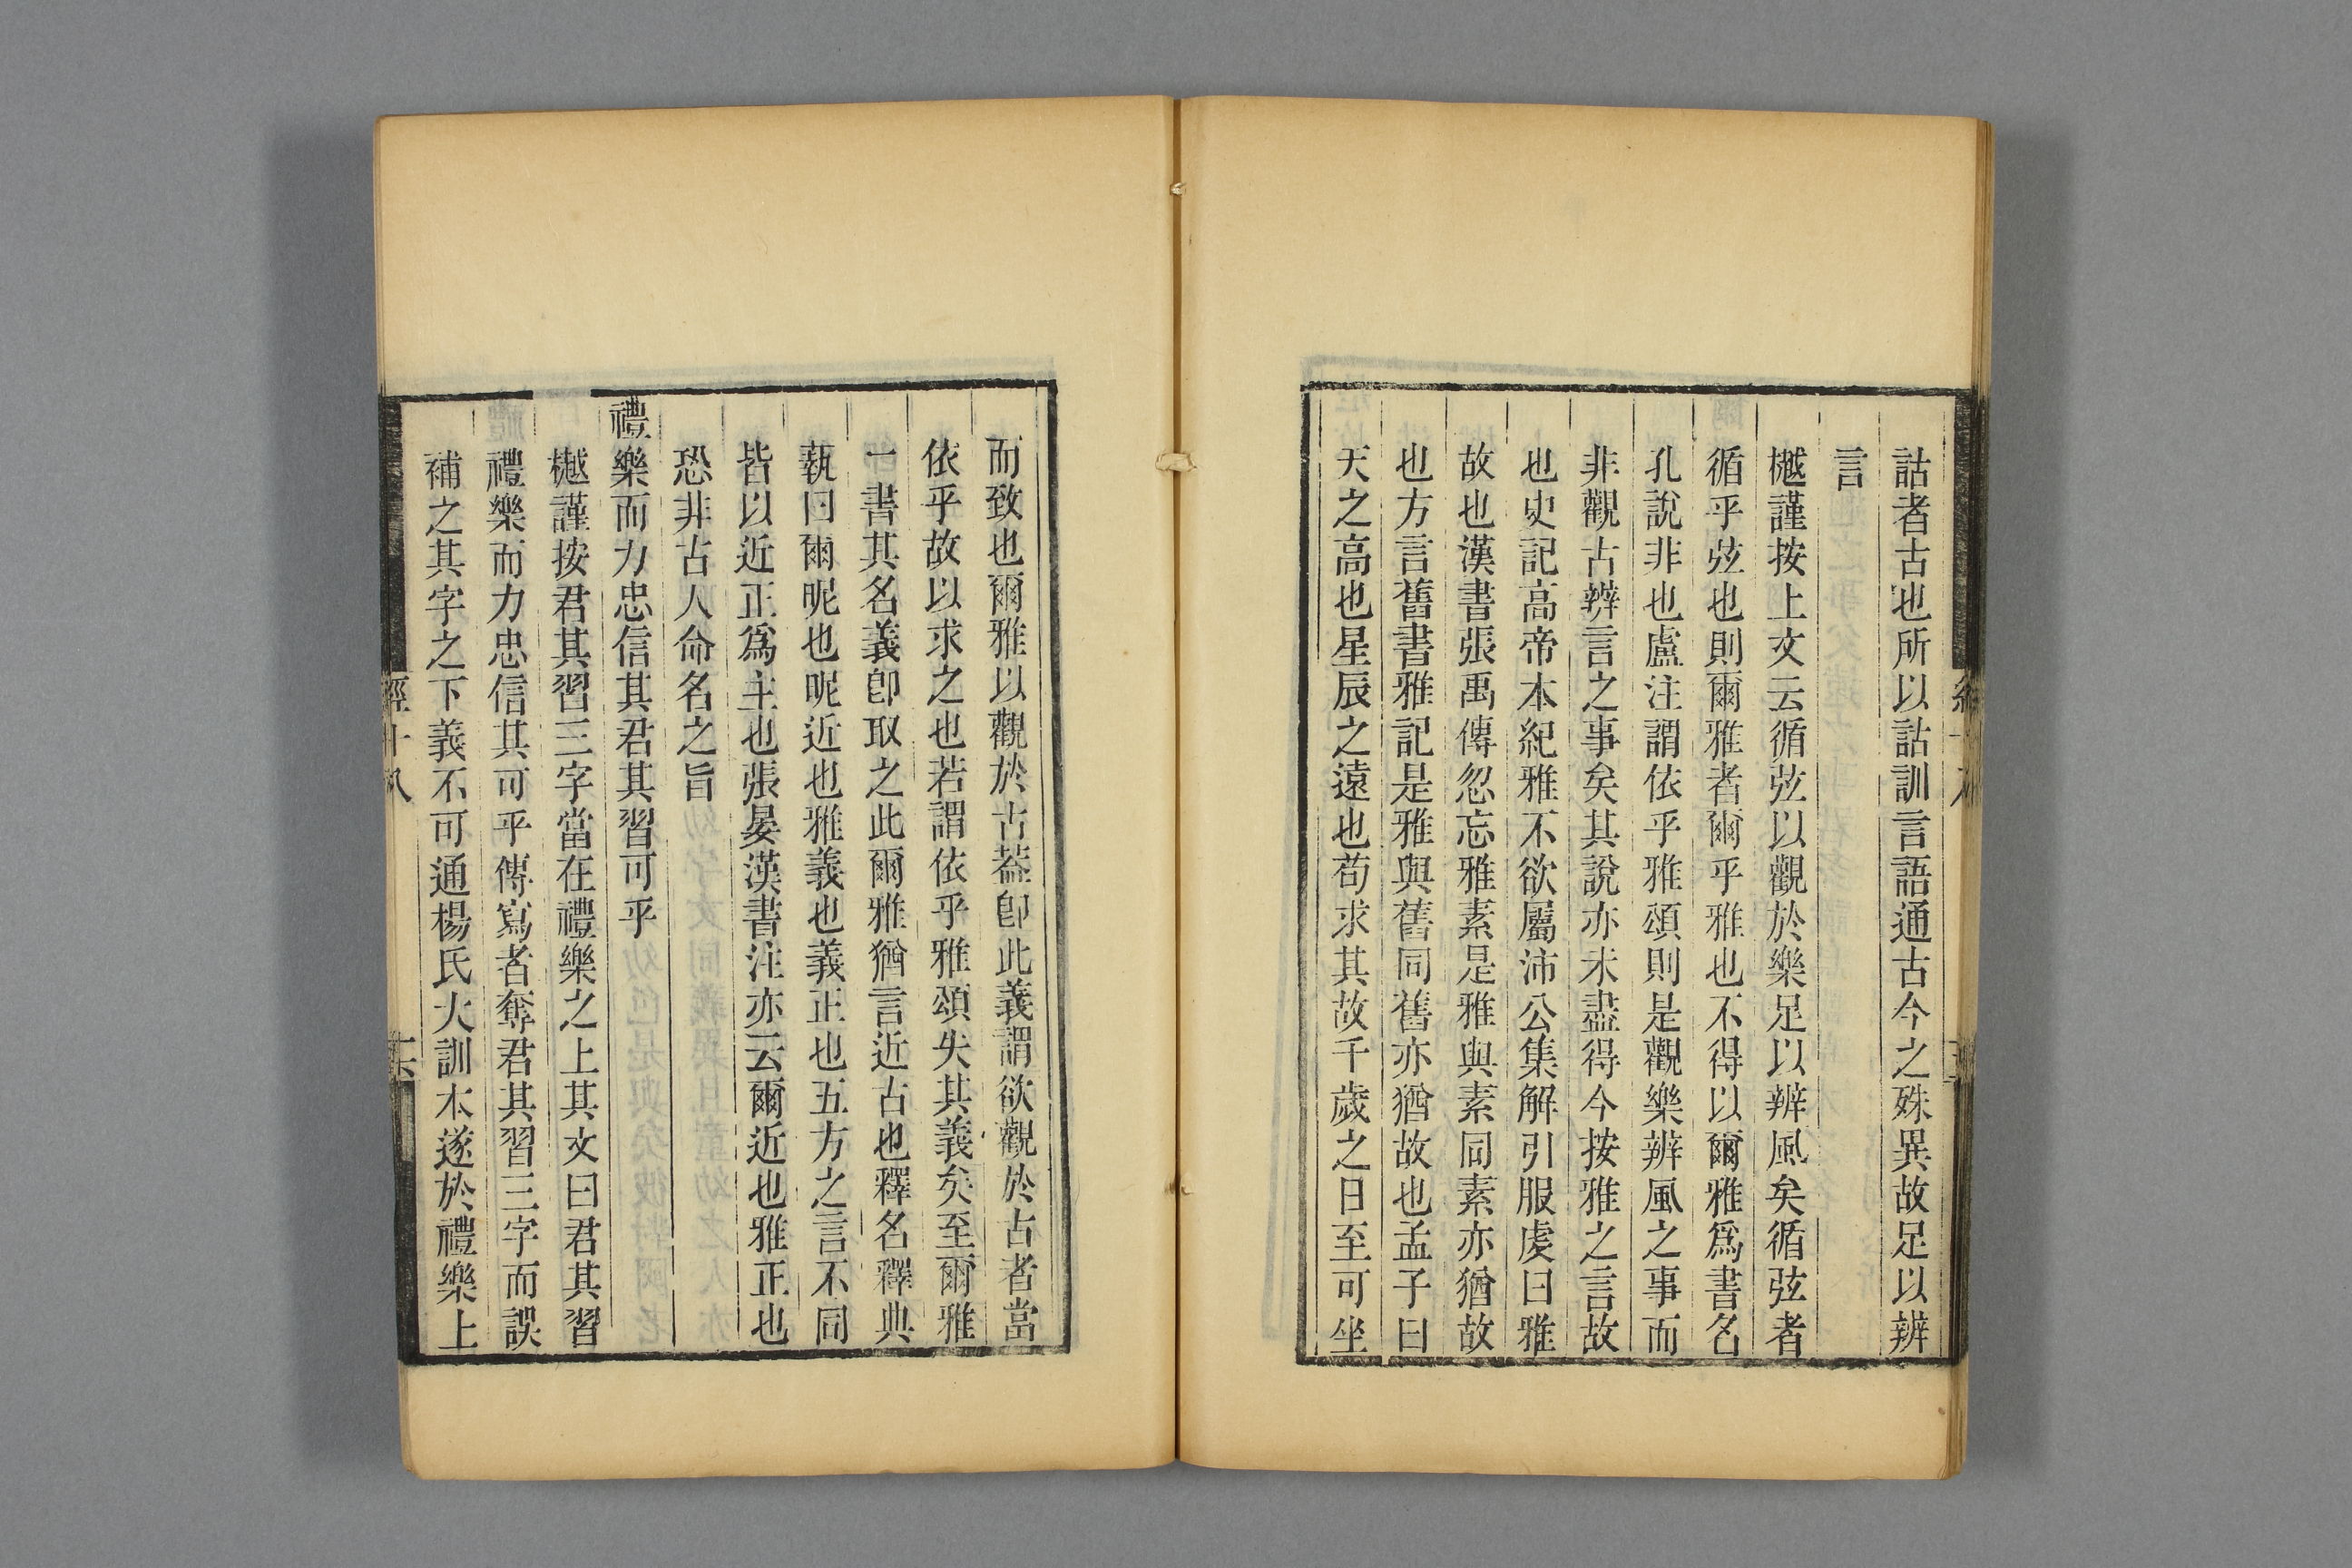 詁者古也所以詁訓言語通古今之殊異故足以辨
言
樾謹按上文云循弦以觀於樂足以辨風矣循弦者
循乎弦也則爾雅者爾乎雅也不得以爾雅爲書名
孔說非也盧注謂依乎雅頌則是觀樂辨風之事而
非觀古辨言之事矣其說亦未盡得今按雅之言故
也史記高帝本紀雅不欲屬沛公集解引服虔曰雅
故也漢書張禹傳忽忘雅素是雅與素同素亦猶故
也方言舊書雅記是雅與舊同舊亦猶故也孟子曰
天之高也星辰之遠也苟求其故千歲之日至可坐
而致也爾雅以觀於古葢卽此義謂欲觀於古者當
依乎故以求之也若謂依乎雅頌失其義矣至爾雅
一書其名義卽取之此爾雅猶言近古也釋名釋典
執曰爾昵也昵近也雅義也義正也五方之言不同
皆以近正爲主也張晏漢書注亦云爾近也雅正也
恐非古人命名之旨
禮樂而力忠信其君其習可乎
樾謹按君其習三字當在禮樂之上其文曰君其習
禮樂而力忠信其可乎傳寫者奪君其習三字而誤
補之其字之下義不可通楊氏大訓本遂於禮樂上
經十八